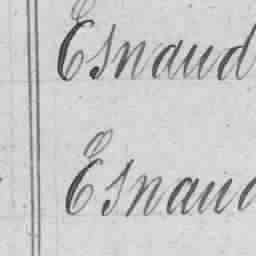 Esnaud
Esnaud